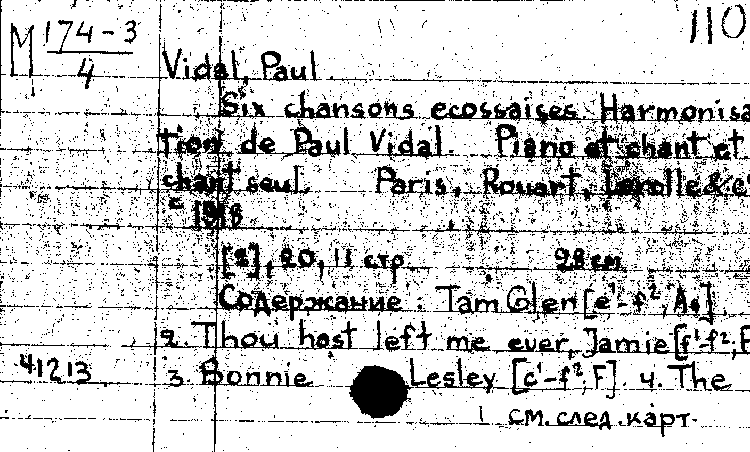 110
M 174-3
4
Vidal, Paul.
Six chansons ecossaises. Harmonisa
tion de Paul Vidal. Piano et chant et
chant seul. Paris, Rouart, Lerolle & c
[2], 20, 11 стр. 28 cm
Содержание: Tam Glen [e'-f²; As]
2. Thou hast left me ever, Jamie [f'-f²; F
41213 3. Bonnie Lesley [c'-f²; F]. 4. The
см. след. карт.